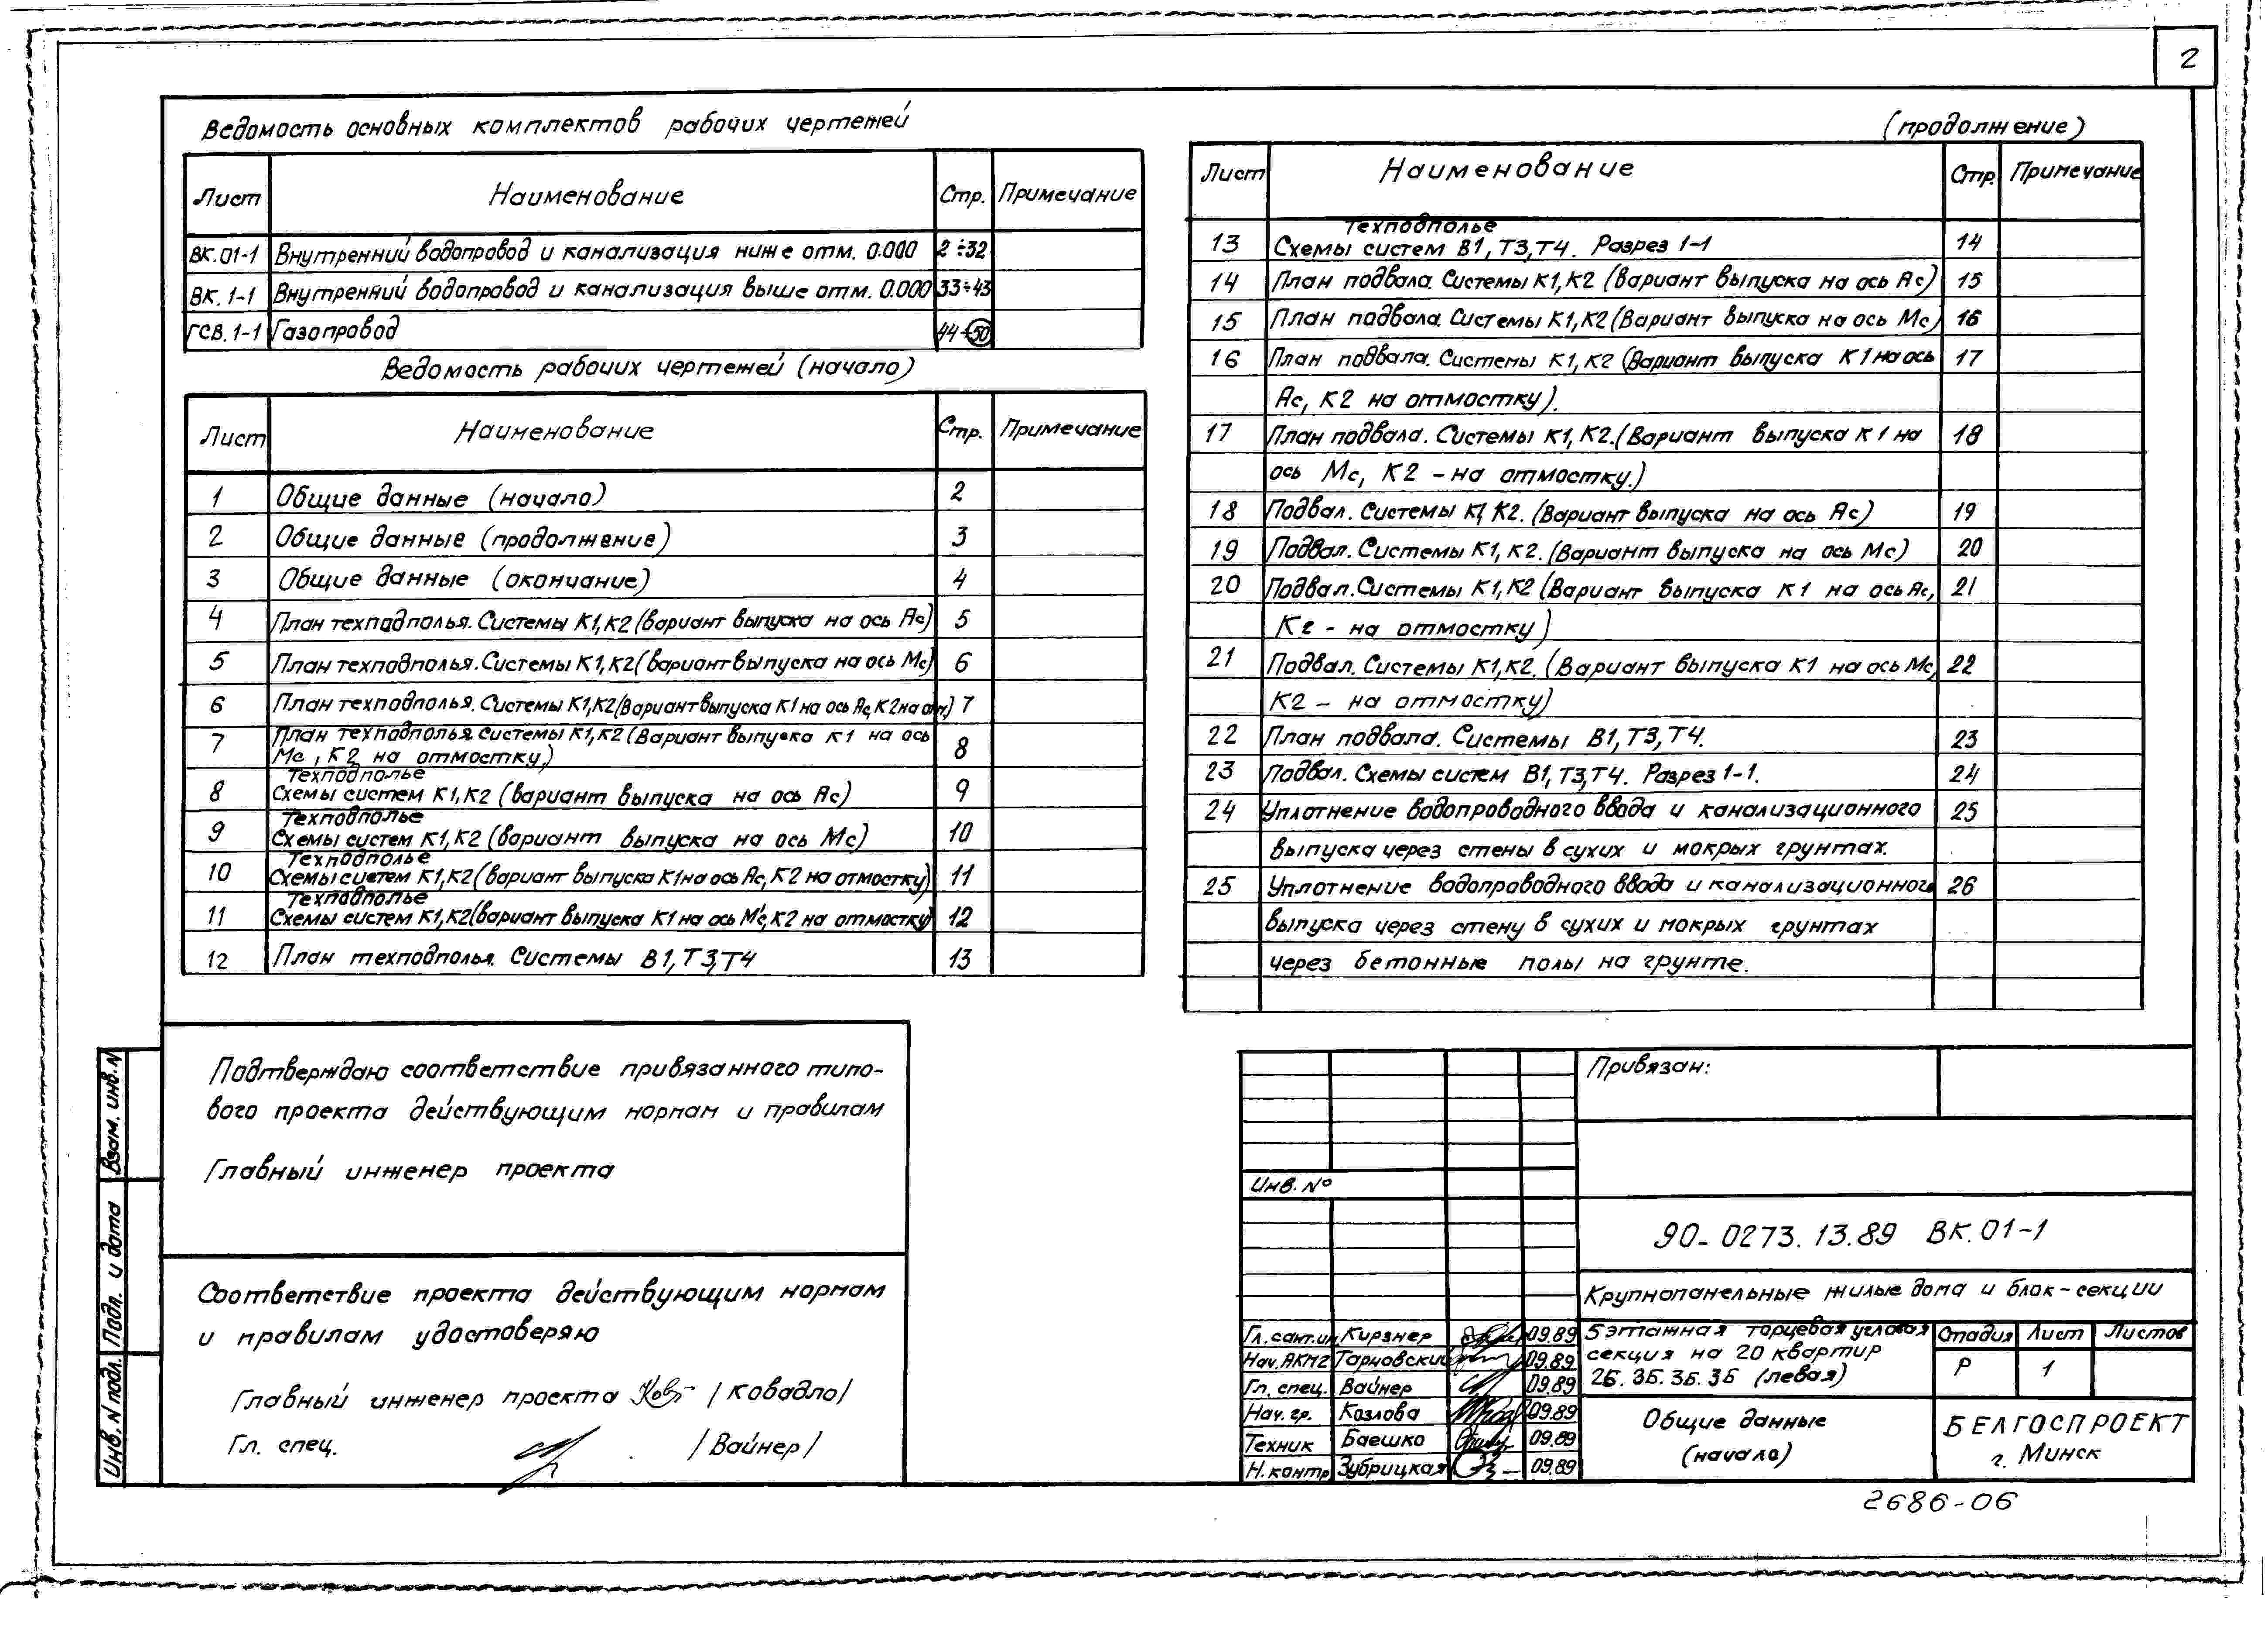 2
Ведомость основных комплектов рабочих чертежей
Лист Наименование Стр. Примечание
ВК.01-1 Внутренний водопровод и канализация ниже отм. 0.000 2÷32
ВК.1-1 Внутренний водопровод и канализация выше отм. 0.000 33÷43
ГСВ.1-1 Газопровод 44÷50
Ведомость рабочих чертежей (начало)
Лист Наименование Стр. Примечание
1 Общие данные (начало) 2
2 Общие данные (продолжение) 3
3 Общие данные (окончание) 4
4 План техподполья. Системы К1, К2 (вариант выпуска на ось Ас) 5
5 План техподполья. Системы К1, К2 (вариант выпуска на ось Мс) 6
6 План техподполья. Системы К1, К2 (Вариант выпуска К1 на ось Ас, К2 на отм.) 7
7 План техподполья системы К1, К2 (Вариант выпуска К1 на ось
Мс, К2 на отмостку) 8
Техподполье
8 Схемы систем К1, К2 (вариант выпуска на ось Ас) 9
Техподполье
9 Схемы систем К1, К2 (вариант выпуска на ось Мс) 10
Техподполье
10 Схемы систем К1, К2 (вариант выпуска К1 на ось Ас, К2 на отмостку) 11
Техподполье
11 Схемы систем К1, К2 (вариант выпуска К1 на ось Мс, К2 на отмостку) 12
12 План техподполья. Системы В1, Т3, Т4 13
(продолжение)
Лист Наименование Стр. Примечание
Техподполье
13 Схемы систем В1, Т3, Т4. Разрез 1-1 14
14 План подвала. Системы К1, К2 (Вариант выпуска на ось Ас) 15
15 План подвала. Системы К1, К2 (Вариант выпуска на ось Мс) 16
16 План подвала. Системы К1, К2 (Вариант выпуска К1 на ось 17
Ас, К2 на отмостку).
17 План подвала. Системы К1, К2. (Вариант выпуска К1 на 18
ось Мс, К2 - на отмостку.)
18 Подвал. Системы К1, К2. (Вариант выпуска на ось Ас) 19
19 Подвал. Системы К1, К2. (Вариант выпуска на ось Мс) 20
20 Подвал. Системы К1, К2 (Вариант выпуска К1 на ось Ас, 21
К2 - на отмостку)
21 Подвал. Системы К1, К2. (Вариант выпуска К1 на ось Мс, 22
К2 - на отмостку)
22 План подвала. Системы В1, Т3, Т4. 23
23 Подвал. Схемы систем В1, Т3, Т4. Разрез 1-1. 24
24 Уплотнение водопроводного ввода и канализационного 25
выпуска через стены в сухих и мокрых грунтах.
25 Уплотнение водопроводного ввода и канализационного 26
выпуска через стену в сухих и мокрых грунтах
через бетонные полы на грунте.
Подтверждаю соответствие привязанного типо-
вого проекта действующим нормам и правилам
Главный инженер проекта
Соответствие проекта действующим нормам
и правилам удостоверяю
Главный инженер проекта /Ковадло/
Гл. спец. /Вайнер/
Взам. инв. N
Подп. и дата
Инв. N подл.
Привязан:
Инв. №
90-0273.13.89 ВК.01-1
Крупнопанельные жилые дома и блок-секции
Гл. сант. ин. Кирзнер 09.89
Нач. АКМ2 Тарновский 09.89
Гл. спец. Вайнер 09.89
Нач. гр. Козлова 09.89
Техник Баешко 09.89
Н. контр Зубрицкая 09.89
5 этажная торцевая угловая
секция на 20 квартир
2Б. 3Б. 3Б. 3Б (левая)
Стадия Лист Листов
Р 1
Общие данные
(начало)
БЕЛГОСПРОЕКТ
г. Минск
2686-06